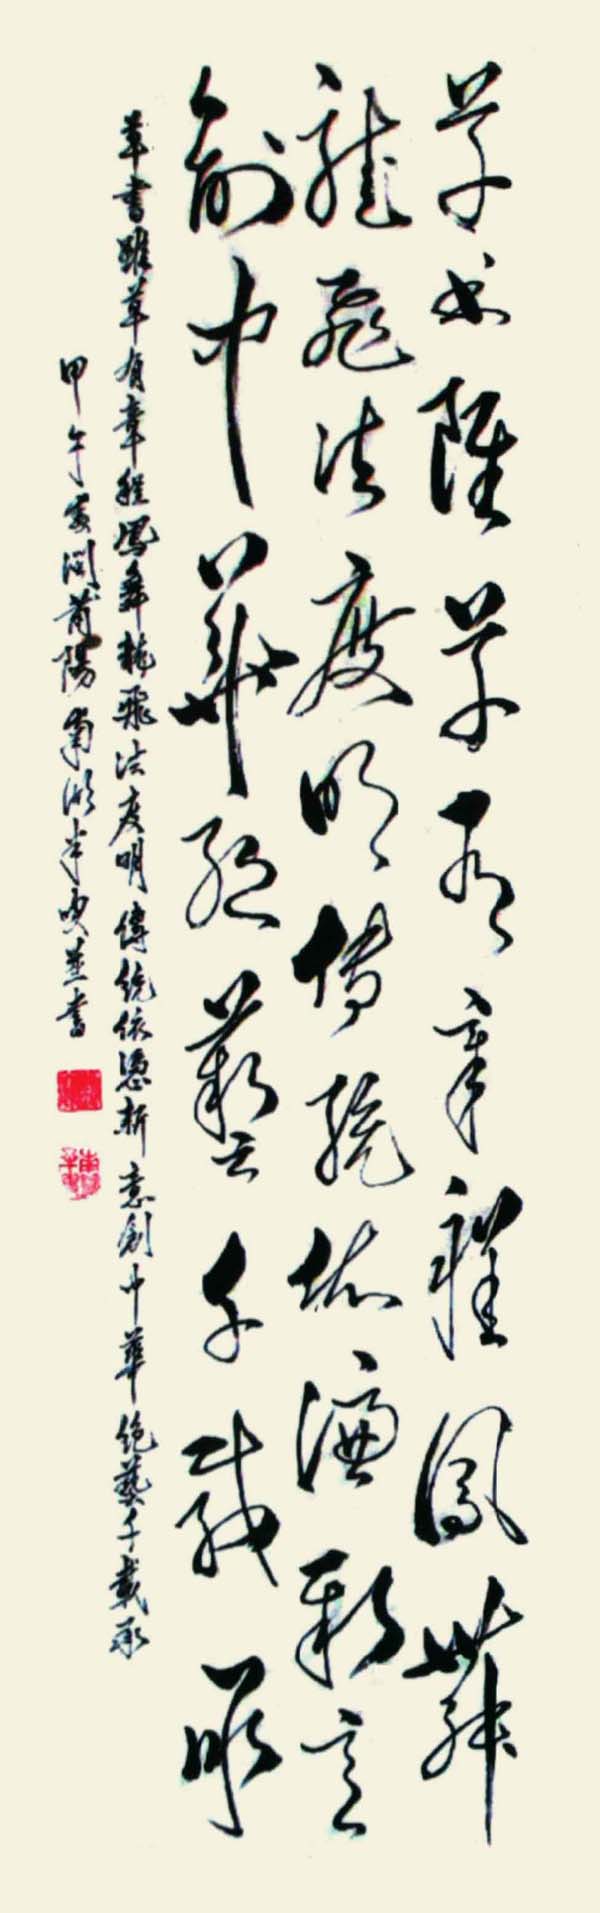 草书虽草有章程凤舞
龙飞法度明传统依凭新意
创中华绝艺千载承
草書雖草有章程鳳舞龍飛法度明傳統依憑新意創中華絕藝千載承
甲午 莆陽 半 並書